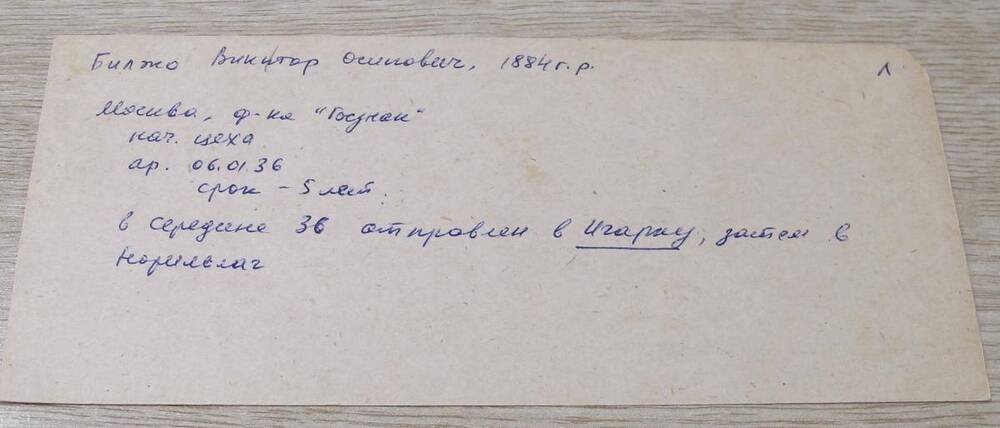 Билжо Виктор Осипович, 1884 г.р. Л
Москва, ф-ка "Госзнак"
нач. цеха
ар. 06.01.36
срок - 5 лет.
в середине 36 отправлен в Игарку, затем в
Норильлаг